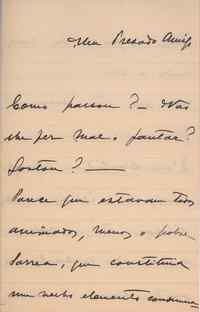 Meu Prezado Amigo
Como passou? — Não
lhe fez mal o jantar?
Gostou? —
Parece que estavam todos
animados, menos o pobre
Correa, que constituia
um verbo elemento